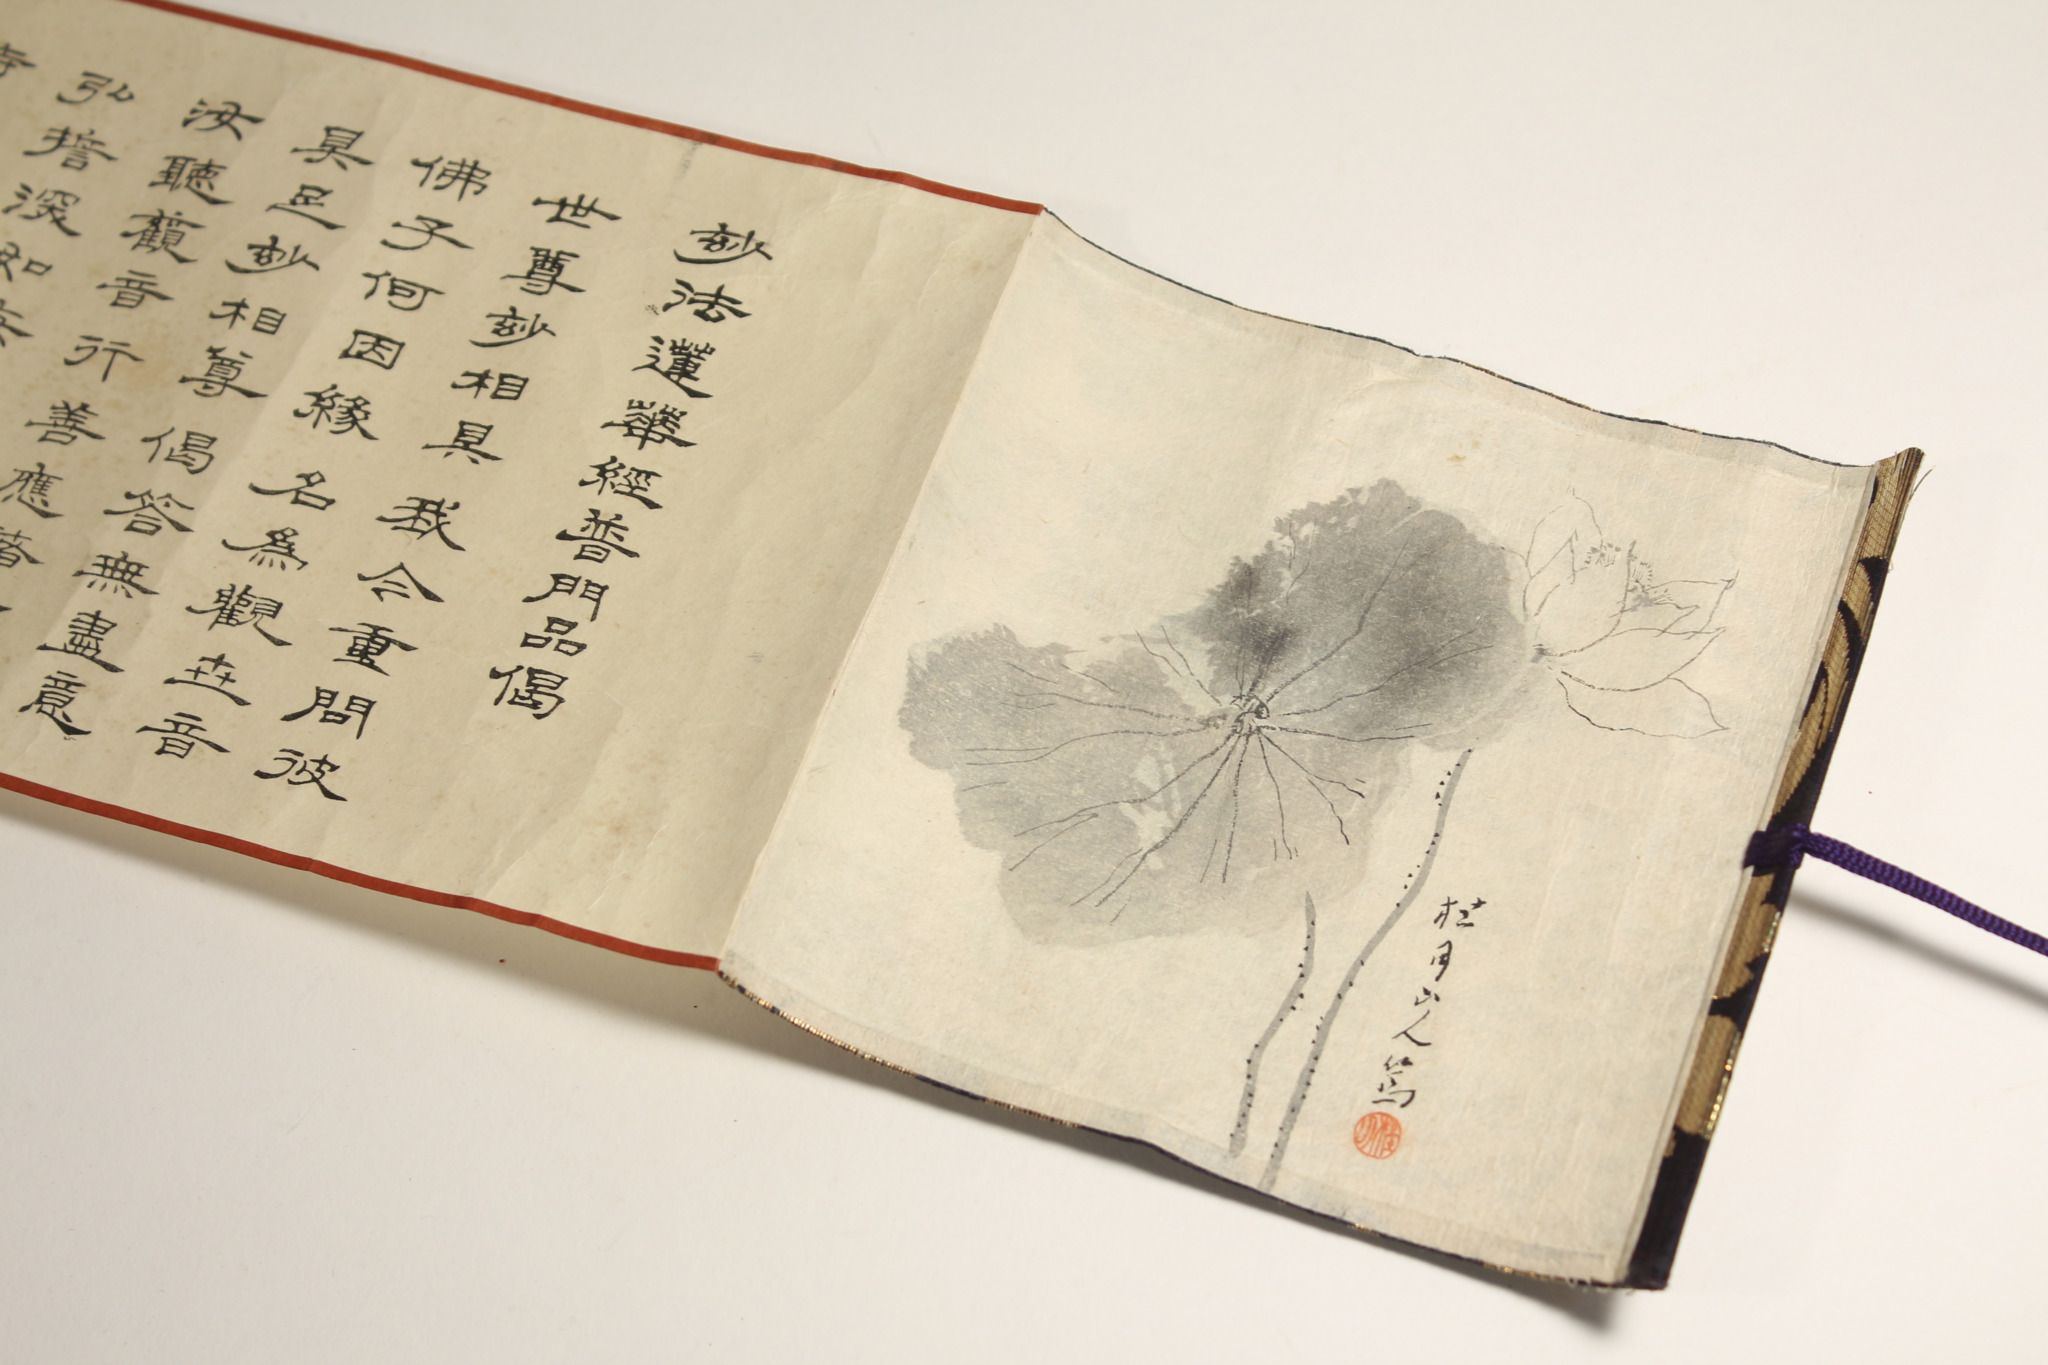 松月山人篤
玅法蓮華經普門品偈
世尊玅相具 我今重問彼
佛子何因緣 名爲觀世音
具足玅相尊 偈答無盡意
汝聽觀音行 善應諸
弘誓深如